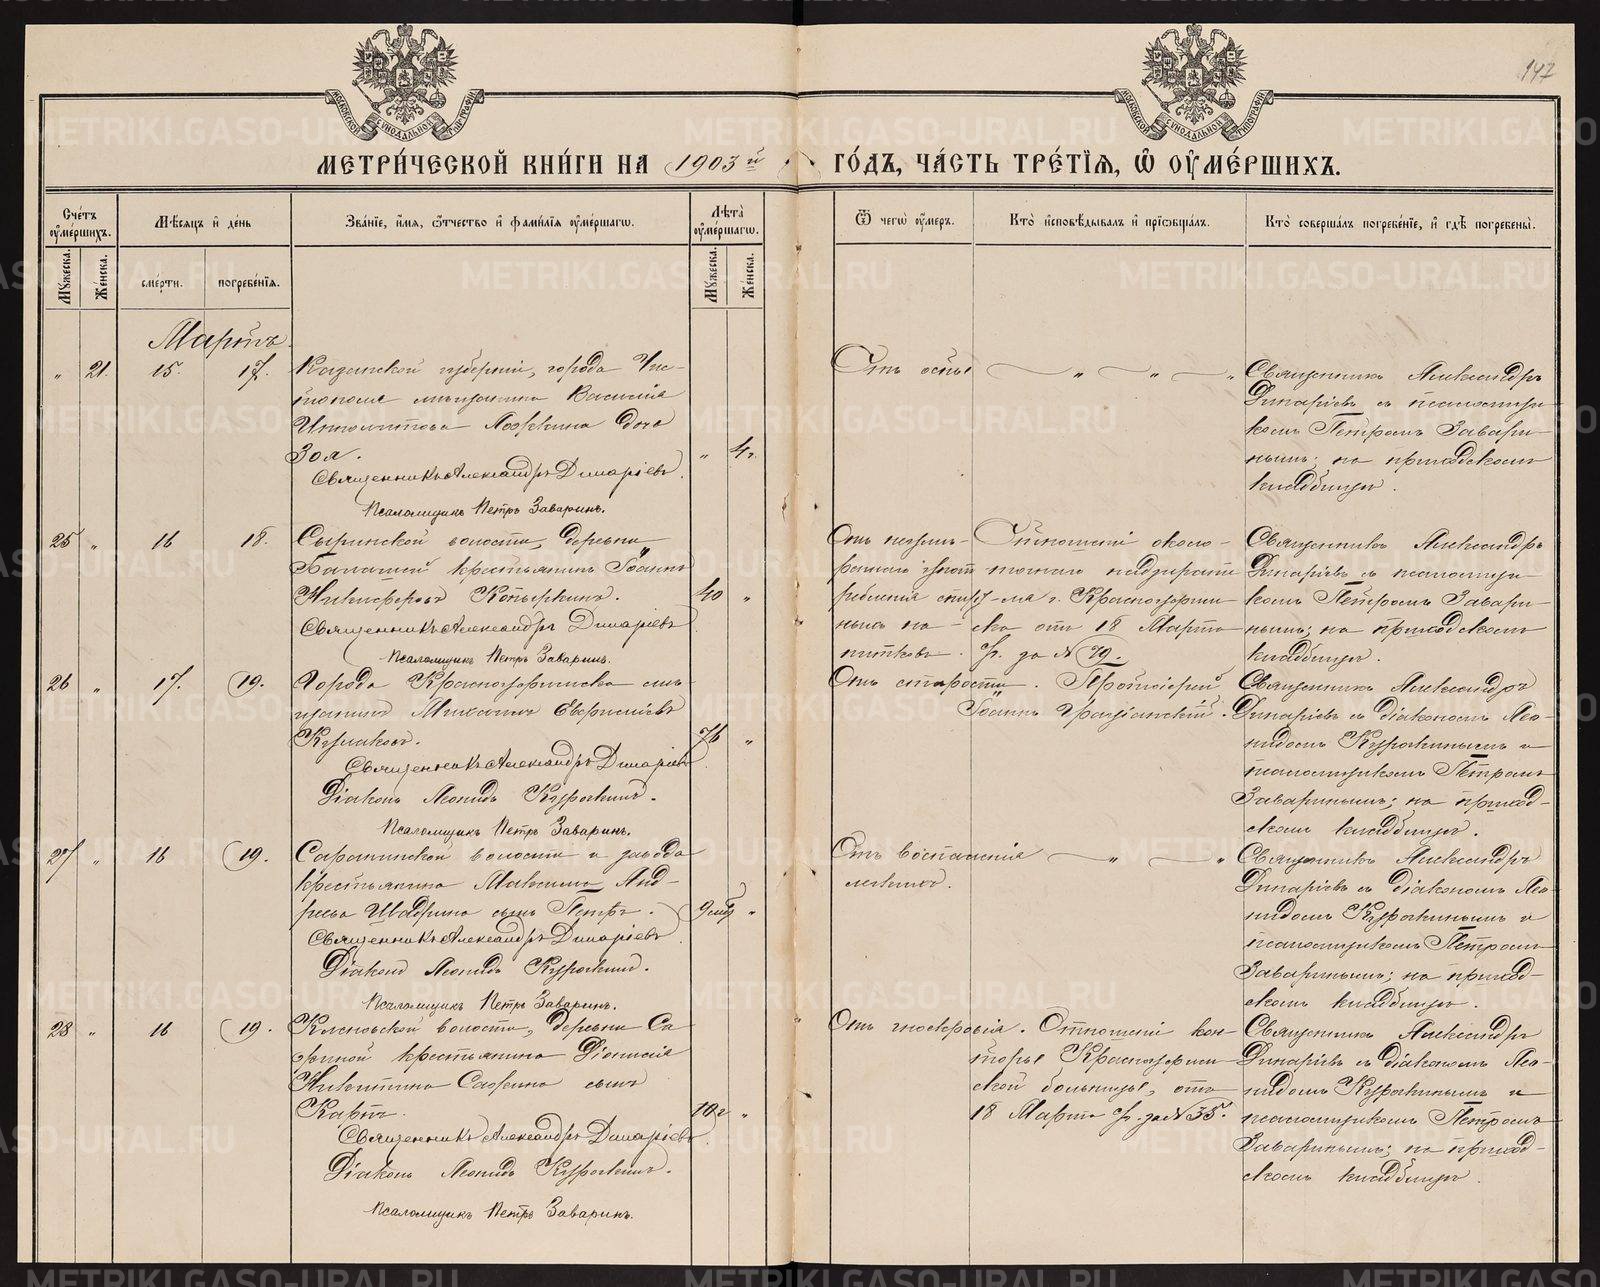 147
МОСКОВСКОЙ СѴНОДАЛЬНОЙ ТИПОГРАФІИ
МОСКОВСКОЙ СѴНОДАЛЬНОЙ ТИПОГРАФІИ
МЕТРИ́ЧЕСКОЙ КНИ́ГИ НА 1903й ГО́ДЪ, ЧА́СТЬ ТРЕ́ТІѦ, Ѡ ОУМЕ́РШИХЪ.
Сче́тъ оуме́ршихъ.
Мꙋжеска. Же́нска.
Мѣсѧцъ и де́нь
сме́рти. погребе́нїѧ.
Зва́нїе, и́мѧ, ѻ́тчество и фами́лїѧ оуме́ршагѡ.
Лѣта̀ оуме́ршагѡ.
Мꙋжеска. Же́нска.
Ѿ чегѡ̀ оу́меръ.
Кто̀ и҆сповѣ́дывалъ и҆ прїѡбща́лъ.
Кто̀ соверша́лъ погребе́нїе, и҆ гдѣ̀ погребены̀.
Мартъ
„ 21. 15. 17.
Казанской губерніи, города Чис-
тополя мѣщанина Василія
Ипполитова Ложкина дочь
Зоя.
„ 4 г.
Священникъ Александръ Димаріевъ
Псаломщикъ Петръ Заваринъ.
Отъ оспы „ „ „
Священникъ Александръ
Димаріевъ съ псаломщи-
комъ Петромъ Завари-
нымъ; на приходскомъ
кладбищѣ.
25 „ 16 18.
Сыринской волости, деревни
крестьянинъ Іоаннъ
Никифоровъ Копыркинъ.
40 „
Священникъ Александръ Димаріевъ
Псаломщикъ Петръ Заваринъ.
Отъ неумѣ-
реннаго употр
ребленія спирт-
ныхъ на-
питковъ.
Отношеніе около-
точнаго надзирателя
г. Красноуфим-
ска отъ 18 Марта
с.г. за № 79.
Священникъ Александръ
Димаріевъ съ псаломщи-
комъ Петромъ Завари-
нымъ; на приходскомъ
кладбищѣ.
26 „ 17. 19.
Города Красноуфимска мѣ-
щанинъ Михаилъ Евфиміевъ
Кулаковъ.
76 „
Священникъ Александръ Димаріевъ
Діаконъ Леонидъ Курочкинъ.
Псаломщикъ Петръ Заваринъ.
Отъ старости.
Протоіерей
Іоаннъ Граціанскій.
Священникъ Александръ
Димаріевъ съ діакономъ Лео-
нидомъ Курочкинымъ и
псаломщикомъ Петромъ
Заваринымъ; на приход-
скомъ кладбищѣ.
27 „ 16 19.
Саранинской волости и завода
крестьянина Максима Анд-
реева Шадрина сынъ Петръ.
9 мѣс „
Священникъ Александръ Димаріевъ
Діаконъ Леонидъ Курочкинъ.
Псаломщикъ Петръ Заваринъ.
Отъ воспаленія
легкихъ.
„ „
Священникъ Александръ
Димаріевъ съ діакономъ Лео-
нидомъ Курочкинымъ и
псаломщикомъ Петромъ
Заваринымъ; на приход-
скомъ кладбищѣ.
28 „ 16 19.
Кленовской волости, деревни Са-
жиной крестьянина Діонисія
Никитина Сажина сынъ
Карпъ.
10 г „
Священникъ Александръ Димаріевъ.
Діаконъ Леонидъ Курочкинъ.
Псаломщикъ Петръ Заваринъ.
Отъ гнокровія.
Отношеніе кон-
торы Красноуфим-
ской больницы, отъ
18 Марта с.г. за № 35.
Священникъ Александръ
Димаріевъ съ діакономъ Лео-
нидомъ Курочкинымъ и
псаломщикомъ Петромъ
Заваринымъ; на приход-
скомъ кладбищѣ.
METRIKI.GASO-URAL.RU